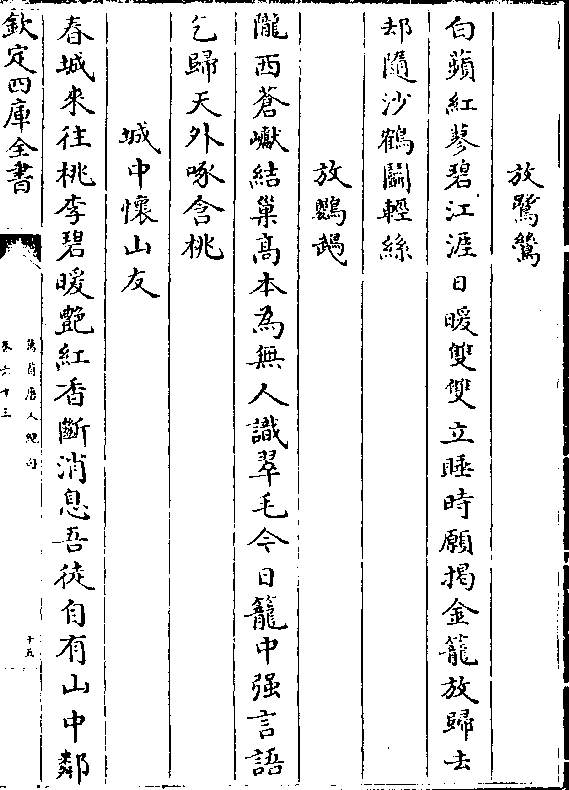 放鷺鷥
白蘋紅蓼碧江涯日暖雙雙立睡時願揭金籠放歸去
却隨沙鶴鬭輕絲
放鸚鵡
隴西蒼巘結巢髙本為無人識翠毛今日籠中强言語
乞歸天外啄含桃
城中懷山友
春城來往桃李碧暖艶紅香斷消息吾徒自有山中鄰
欽定四庫全書
萬首唐人絶句
卷六十三
十五